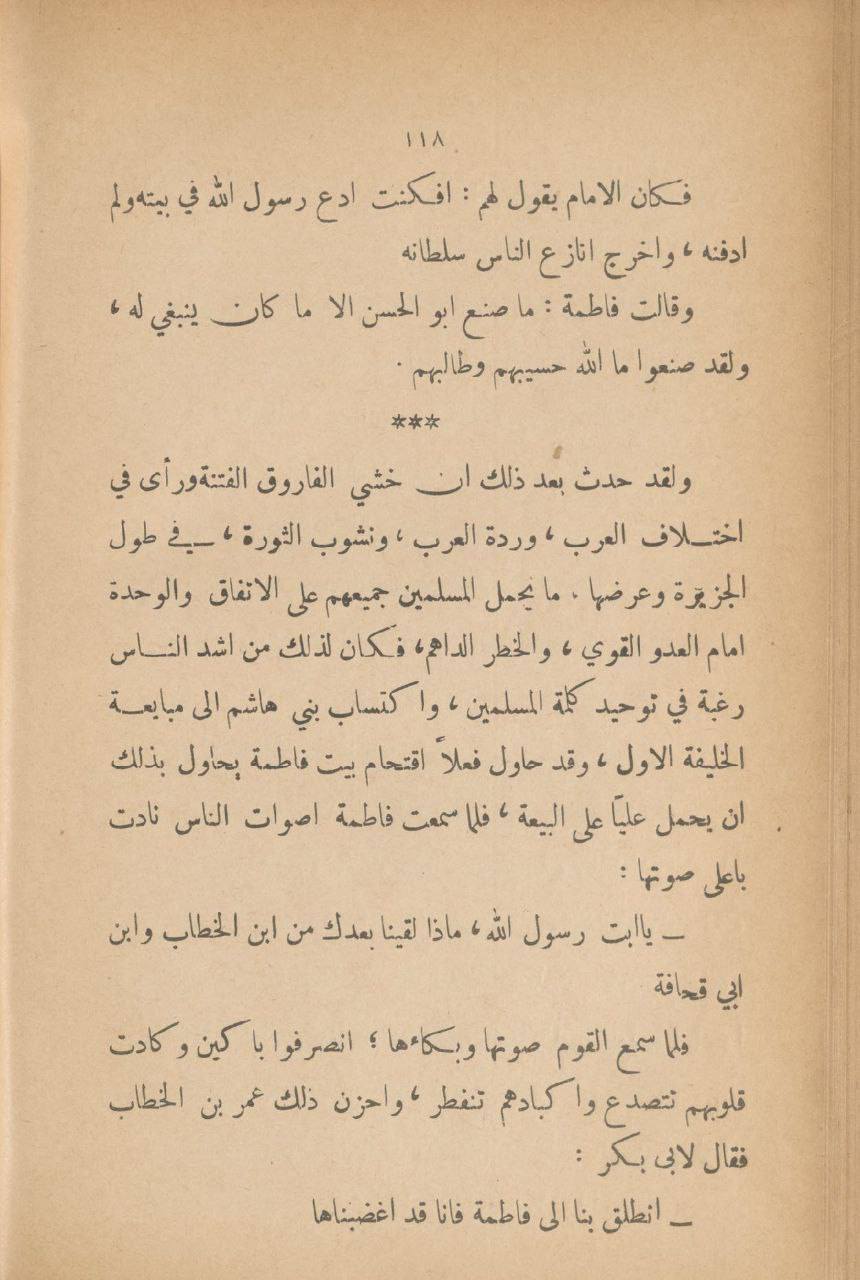 ١١٨
فكان الامام يقول لهم : افكنت ادع رسول الله في بيته ولم
ادفنه ، واخرج انازع الناس سلطانه
وقالت فاطمة : ما صنع ابو الحسن الا ما كان ينبغي له ،
ولقد صنعوا ما الله حسيبهم وطالبهم .
***
ولقد حدث بعد ذلك ان خشي الفاروق الفتنة ورأى في
اختلاف العرب ، وردة العرب ، ونشوب الثورة ، في طول
الجزيرة وعرضها . ما يحمل المسلمين جميعهم على الاتفاق والوحدة
امام العدو القوي ، والخطر الداهم ، فكان لذلك من اشد الناس
رغبة في توحيد كلمة المسلمين ، واكتساب بني هاشم الى مبايعة
الخليفة الاول ، وقد حاول فعلاً اقتحام بيت فاطمة يحاول بذلك
ان يحمل عليًا على البيعة ، فلما سمعت فاطمة اصوات الناس نادت
باعلى صوتها :
ـ يا ابت رسول الله ، ماذا لقينا بعدك من ابن الخطاب وابن
ابي قحافة
فلما سمع القوم صوتها وبكاءها ؛ انصرفوا باكين وكادت
قلوبهم تتصدع واكبادهم تنفطر ، واحزن ذلك عمر بن الخطاب
فقال لابى بكر :
ـ انطلق بنا الى فاطمة فانا قد اغضبناها